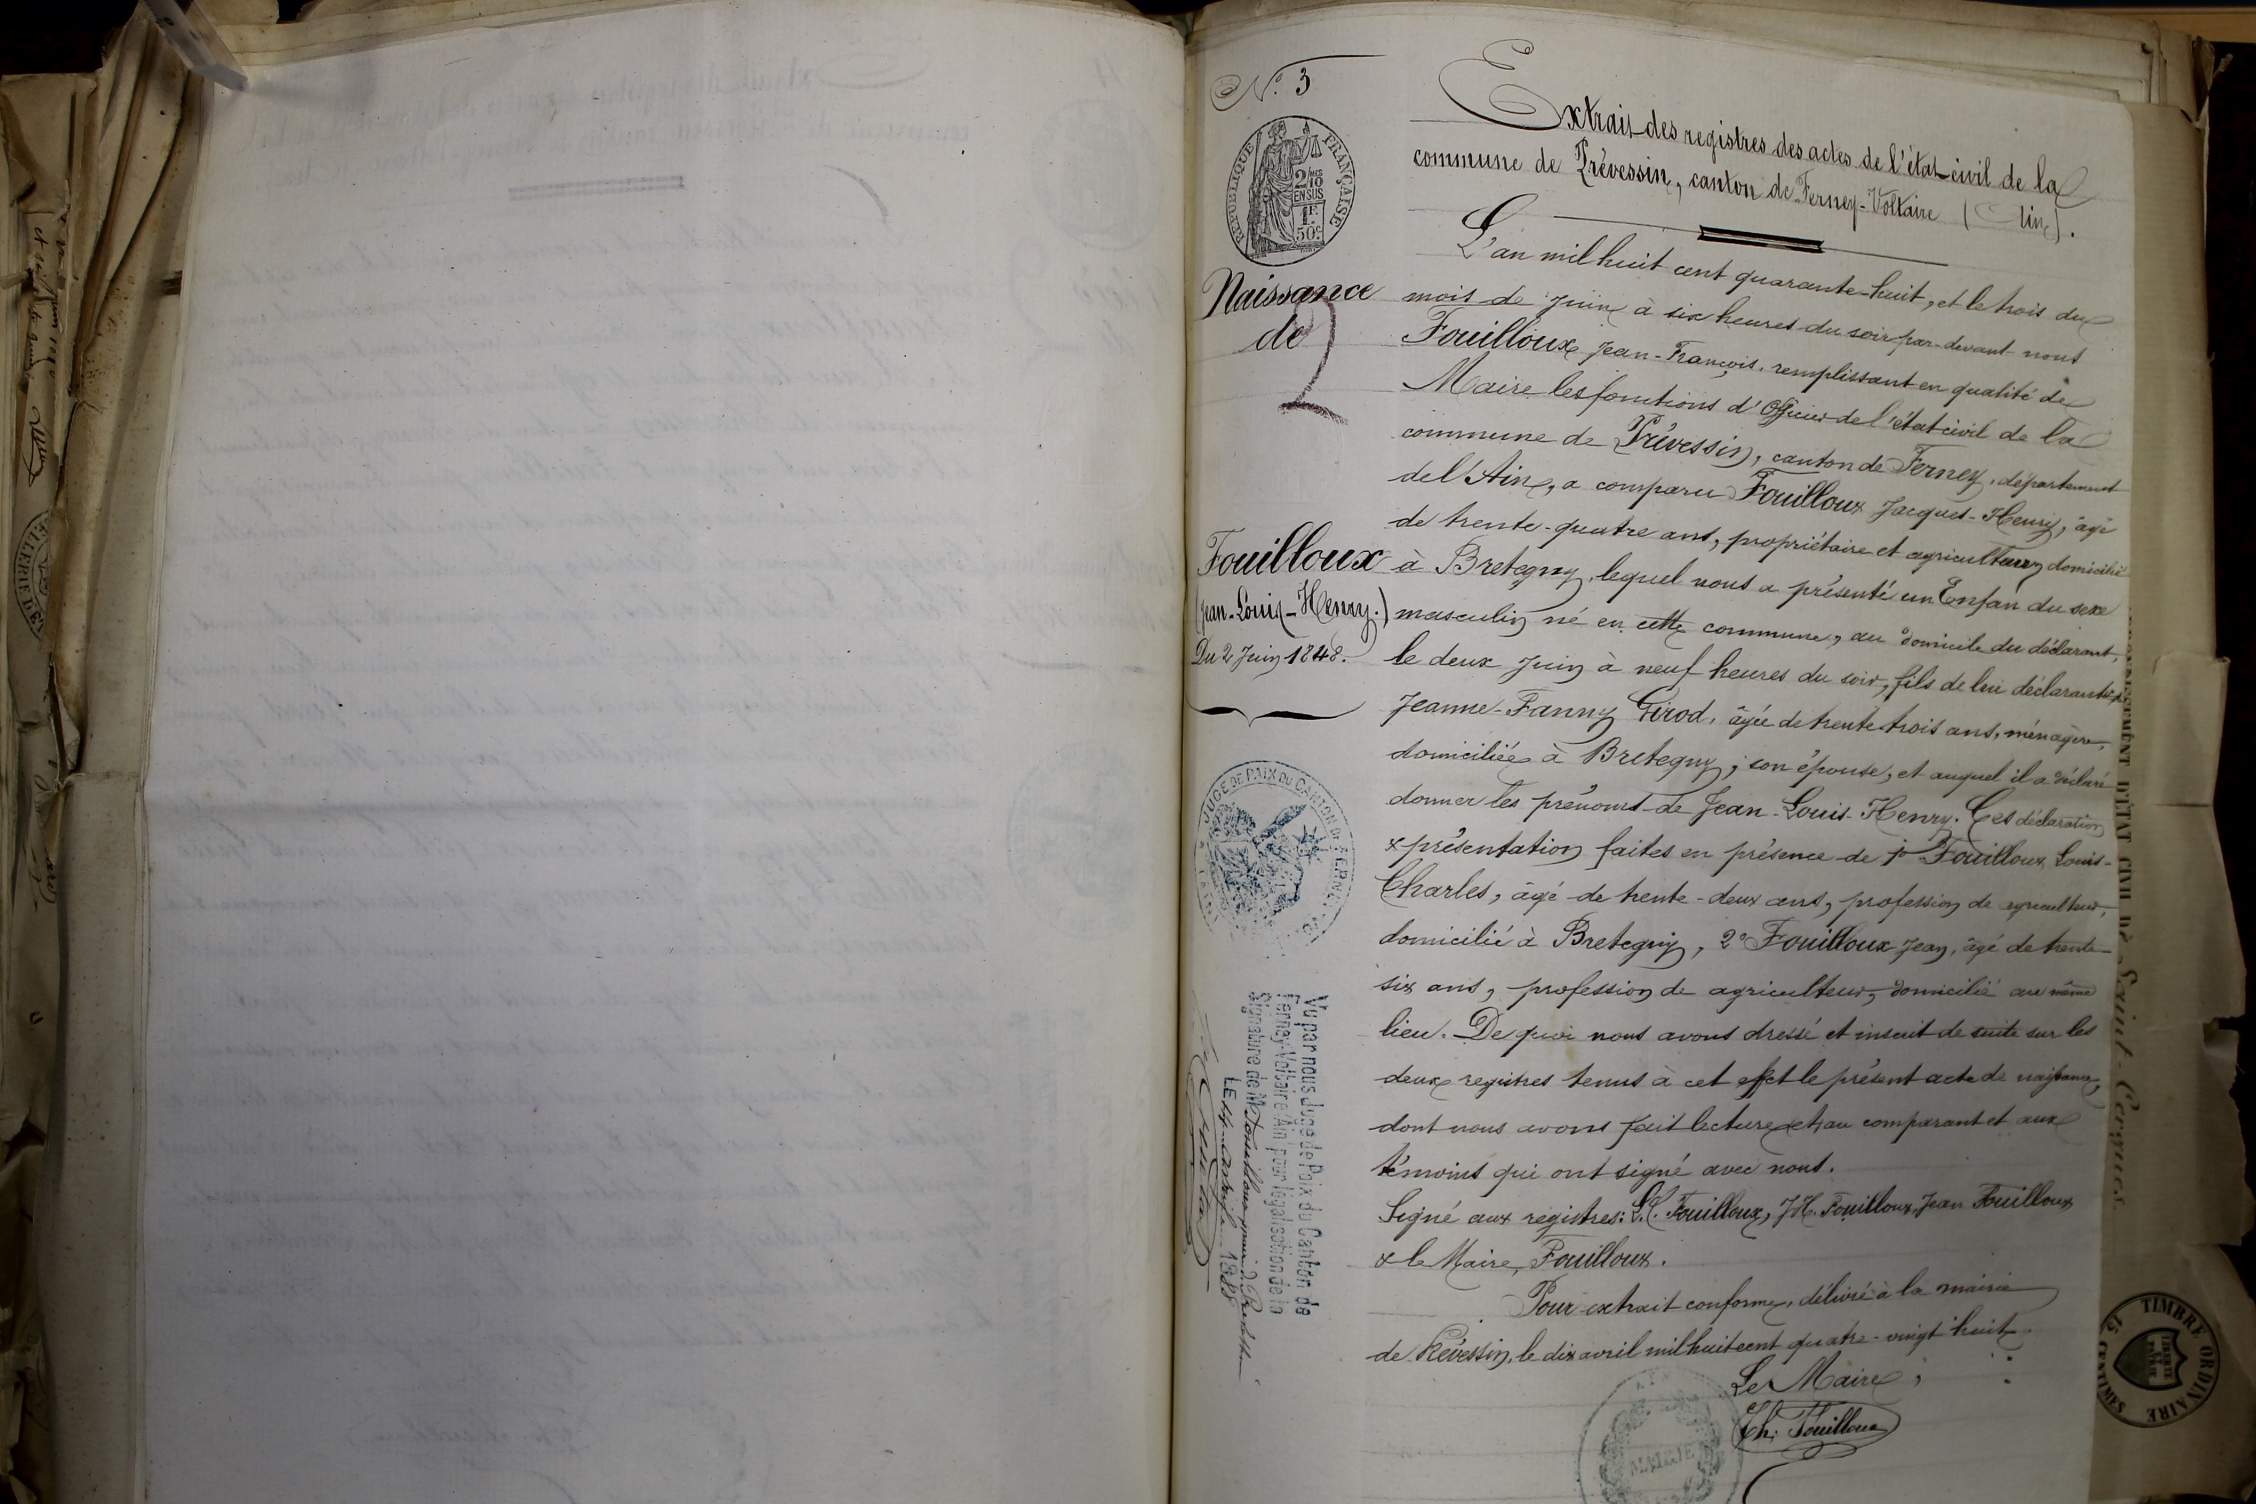 N.° 3
RÉPUBLIQUE FRANÇAISE
2/10 EN SUS
1F 50c
Naissance
de
2
Fouilloux
(Jean-Louis-Henry.)
Du 2 Juin 1848.
JUGE DE PAIX DU CANTON DE FERNEY
Vu par nous Juge de Paix du Canton de
Ferney-Voltaire (Ain) pour légalisation de la
Signature de M. Fouilloux
LE 1888
Extrait des registres des actes de l'état-civil de la
commune de Prévessin, canton de Ferney-Voltaire (Ain).
L'an mil huit cent quarante-huit, et le trois du
mois de juin à six heures du soir par-devant nous
Fouilloux Jean-François, remplissant en qualité de
Maire les fonctions d'Officier de l'état civil de la
commune de Prévessin, canton de Ferney, département
de l'Ain, a comparu Fouilloux Jacques-Henry, âgé
de trente-quatre ans, propriétaire et agriculteur domicilié
à Bretegny, lequel nous a présenté un Enfan du sexe
masculin né en cette commune, au domicile du déclarant,
le deux juin à neuf heures du soir, fils de lui déclarant &
Jeanne-Fanny Girod, âgée de trente trois ans, ménagère,
domiciliée à Bretegny, son épouse, et auquel il a déclaré
donner les prénoms de Jean-Louis-Henry. Ces déclaration
& présentation faites en présence de 1° Fouilloux Louis-
Charles, âgé de trente-deux ans, profession de agriculteur,
domicilié à Bretegny, 2° Fouilloux Jean, âgé de trente-
six ans, profession de agriculteur, domicilié au même
lieu. De quoi nous avons dressé et inscrit de suite sur les
deux registres tenus à cet effet le présent acte de naissance,
dont nous avons fait lecture au comparant et aux
témoins qui ont signé avec nous.
Signé aux registres: L.C. Fouilloux, J.H. Fouilloux, Jean Fouilloux
& le Maire, Fouilloux.
Pour extrait conforme, délivré à la mairie
de Prévessin, le dix avril mil huit cent quatre-vingt huit.
Le Maire,
Ch. Fouilloux
MAIRIE
D'ÉTAT CIVIL DE Saint-Cergues
TIMBRE ORDINAIRE
15 CENTIMES